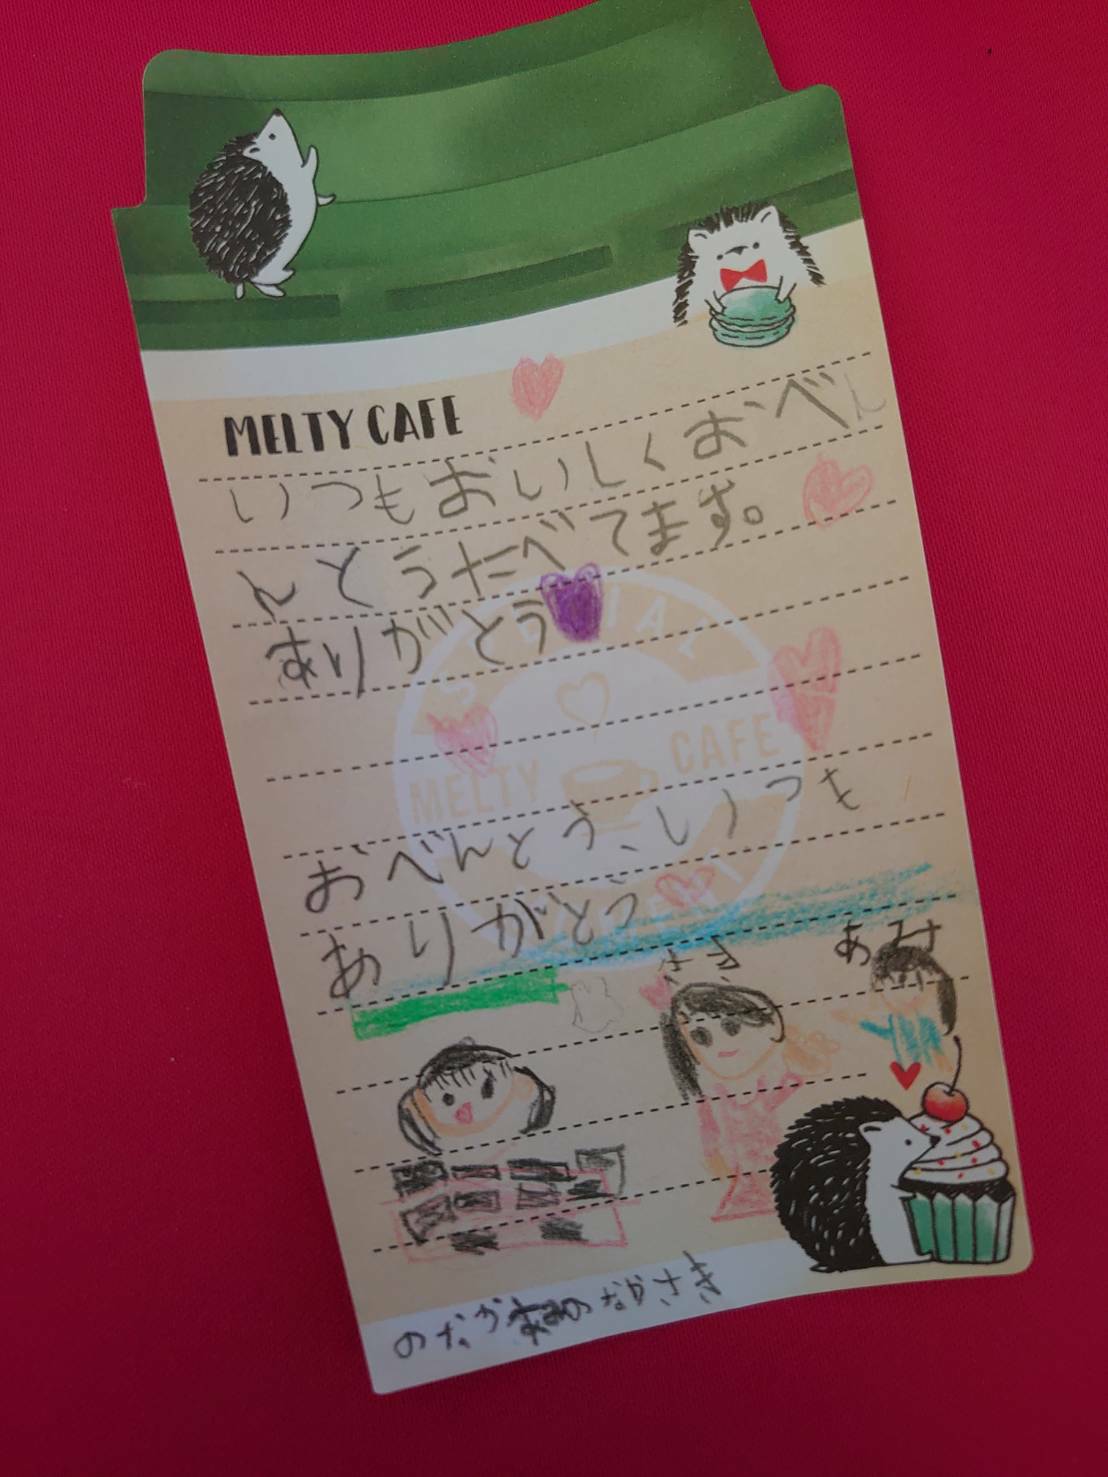 MELTY CAFE
いつもおいしくおべん
んとうたべてます。
ありがとう
MELTY CAFE
おべんとう、いつも
ありがとう
さき
あみ
のなかあみのなかさき